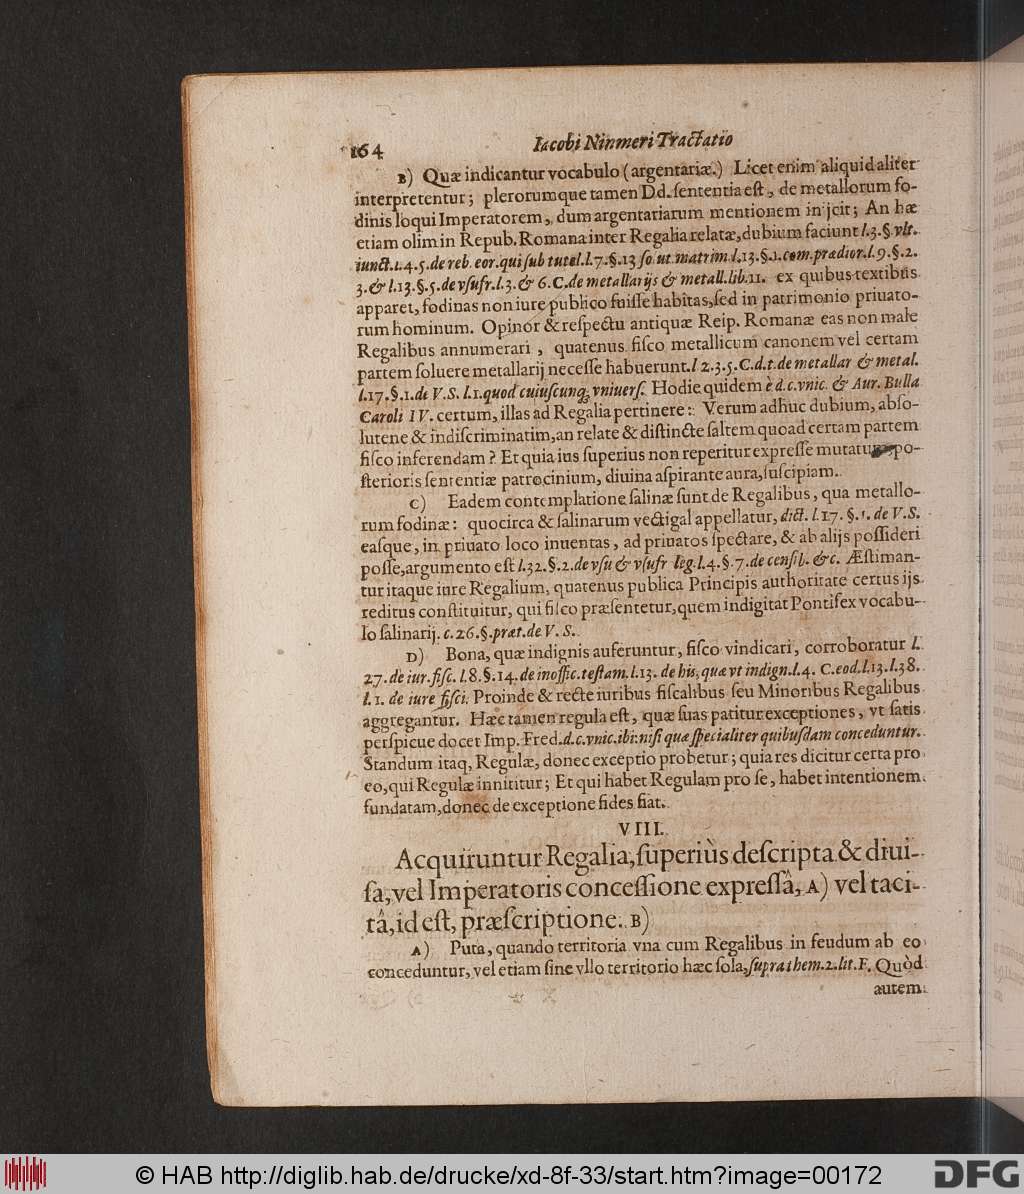 164
Iacobi Ninmeri Tractatio
B) Quæ indicantur vocabulo (argentariæ.) Licet enim aliquid aliter
interpretentur; plerorumque tamen Dd. ſententia eſt, de metallorum fo-
dinis loqui Imperatorem, dum argentariarum mentionem injcit; An hæ
etiam olim in Repub. Romana inter Regalia relatæ, dubium faciunt l.3.§.vlt.
iunct.l.4.5.de reb. eor. qui ſub tutel.l.7.§.13 ſo ut matrim.l.13.§.1.com.prædior.l.9.§.2.
3.& l.13.§.5.de vſufr.l.3.& 6.C.de metallarijs & metall.lib.11. ex quibus textibus
apparet, fodinas non iure publico fuiſſe habitas, ſed in patrimonio priuato-
rum hominum. Opinor & reſpectu antiquæ Reip. Romanæ eas non male
Regalibus annumerari, quatenus fiſco metallicum canonem vel certam
partem ſoluere metallarij neceſſe habuerunt.l 2.3.5.C.d.t.de metallar & metal.
l.17.§.1.de V.S. l.1.quod cuiuſcunq; vniuerſ. Hodie quidem è d.c.vnic. & Aur. Bulla
Caroli IV. certum, illas ad Regalia pertinere: Verum adhuc dubium, abſo-
lutene & indiſcriminatim, an relate & diſtincte ſaltem quoad certam partem
fiſco inferendam? Et quia ius ſuperius non reperitur expreſſe mutatum, po-
ſterioris ſententiæ patrocinium, diuina aſpirante aura, ſuſcipiam.
C) Eadem contemplatione ſalinæ ſunt de Regalibus, qua metallo-
rum fodinæ: quocirca & ſalinarum vectigal appellatur, dict. l.17. §.1. de V.S.
eaſque, in priuato loco inuentas, ad priuatos ſpectare, & ab alijs poſſideri
poſſe, argumento eſt l.32.§.2.de vſu & vſufr leg.l.4.§.7.de cenſib. &c. Æſtiman-
tur itaque iure Regalium, quatenus publica Principis authoritate certus ijs
reditus conſtituitur, qui fiſco præſentetur, quem indigitat Pontifex vocabu-
lo ſalinarij. c.26.§.præt.de V.S.
D) Bona, quæ indignis auferuntur, fiſco vindicari, corroboratur l.
27.de iur.fiſc. l.8.§.14.de inoffic.teſtam.l.13. de his, quæ vt indign.l.4. C.eod.l.13.l.38.
l.1. de iure fiſci. Proinde & recte iuribus fiſcalibus ſeu Minoribus Regalibus
aggregantur. Hæc tamen regula eſt, quæ ſuas patitur exceptiones, vt ſatis
perſpicue docet Imp. Fred.d.c.vnic.ibi: niſi quæ ſpecialiter quibuſdam conceduntur.
Standum itaq; Regulæ, donec exceptio probetur; quia res dicitur certa pro
eo, qui Regulæ innititur; Et qui habet Regulam pro ſe, habet intentionem
fundatam, donec de exceptione fides fiat.
VIII.
Acquiruntur Regalia, ſuperiùs deſcripta & diui-
ſa, vel Imperatoris conceſſione expreſſâ, A) vel taci-
tâ, id eſt, præſcriptione. B)
A) Puta, quando territoria vna cum Regalibus in feudum ab eo
conceduntur, vel etiam ſine vllo territorio hæc ſola, ſupra them.2.lit.F. Quòd
autem
© HAB http://diglib.hab.de/drucke/xd-8f-33/start.htm?image=00172
DFG